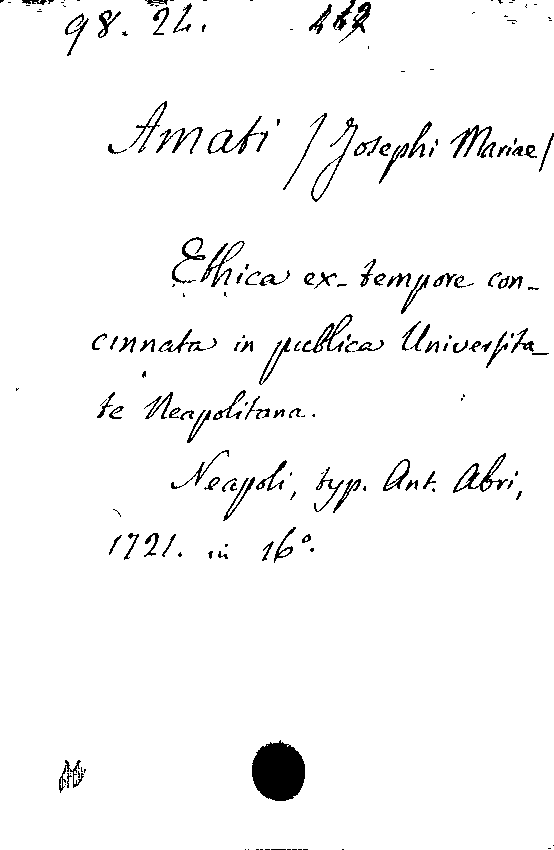 98. 24.
Amati / Josephi Mariae /
Ethica ex-tempore con-
cinnata in publica Universita-
te Neapolitana.
Neapoli, typ. Ant. Abri,
1721. in 16°.